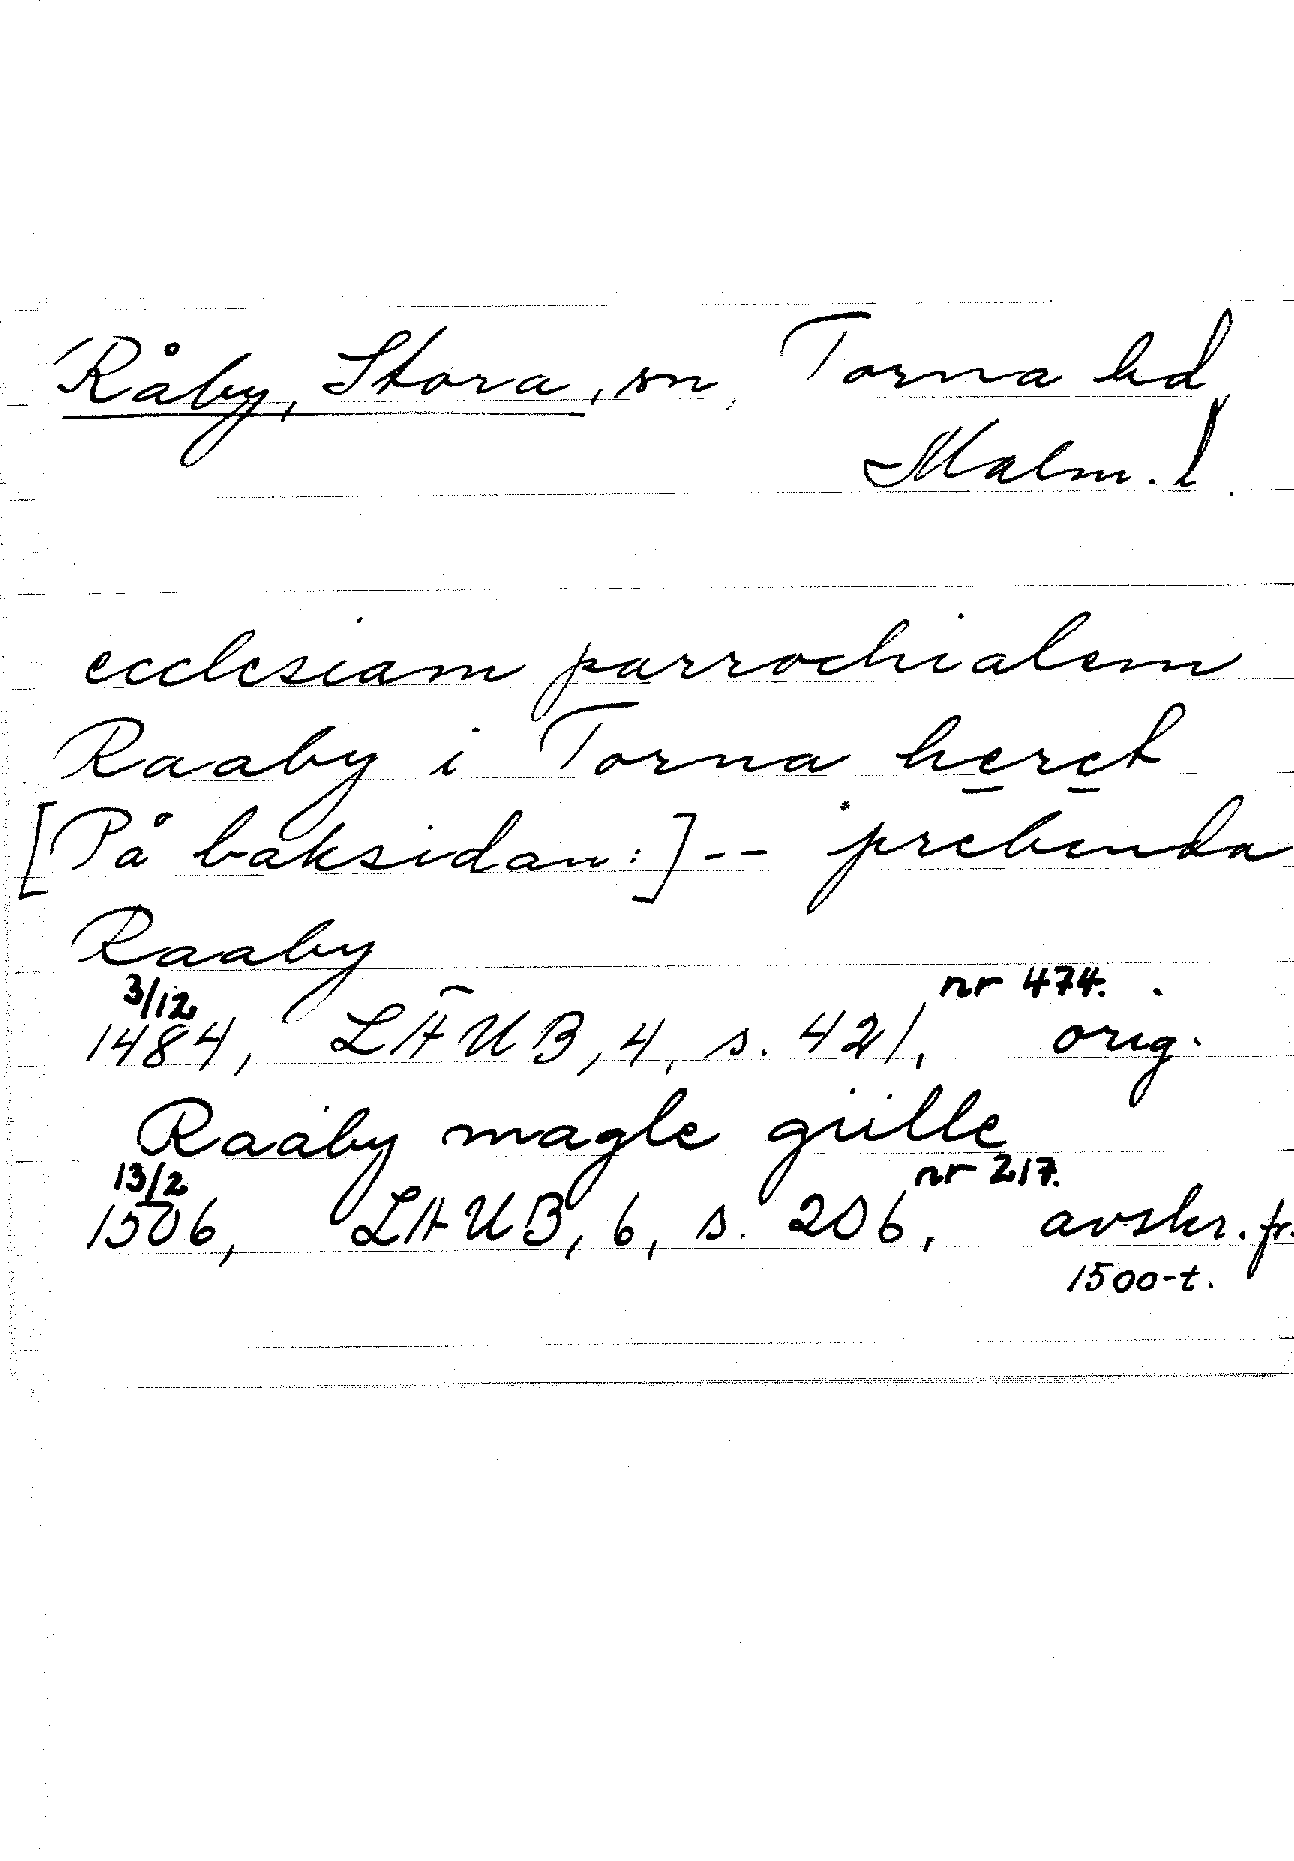 Råby, Stora, sn, Torna hd
Malm. l
ecclesiam parrochialem
Raaby i Torna heret
[På baksidan:] -- prebenda
Raaby
3/12 nr 474.
1484, LÄUB, 4, s. 421, orig.
Raaby magle gille
13/2 nr 217.
1506, LÄUB, 6, s. 206, avskr. fr.
1500-t.